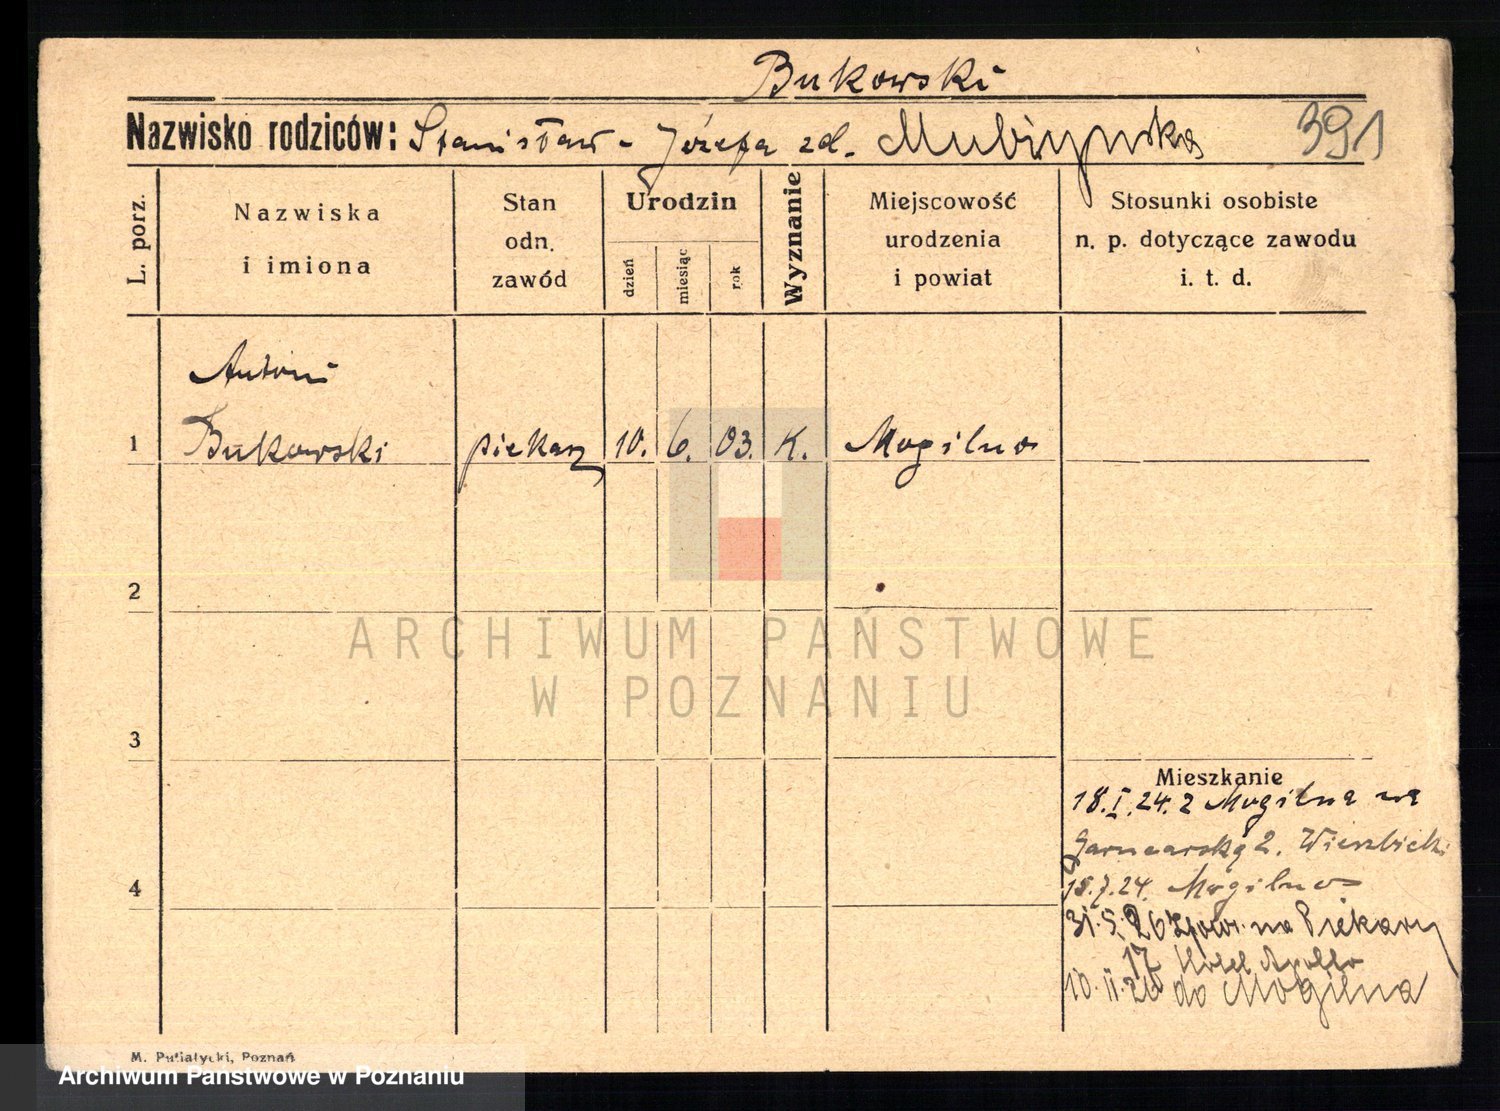 Bukowski
Nazwisko rodziców: Stanisław - Józefa zd.
391
L. porz.
Nazwiska
i imiona
Stan
odn.
zawód
Urodzin
dzień
miesiąc
rok
Wyznanie
Miejscowość
urodzenia
i powiat
Stosunki osobiste
n. p. dotyczące zawodu
i. t. d.
Antoni
1 Bukowski piekarz 10. 6. 03. K. Mogilno
2
ARCHIWUM PAŃSTWOWE
W POZNANIU
3
Mieszkanie
18.I.24. z Mogilna na
Garncarską 2. Wierzbicki
4
15.7.24. Mogilno
31.5.26 na Piekary
17 Hotel Apollo
10.II.26 do Mogilna
M. Putiatycki, Poznań
Archiwum Państwowe w Poznaniu